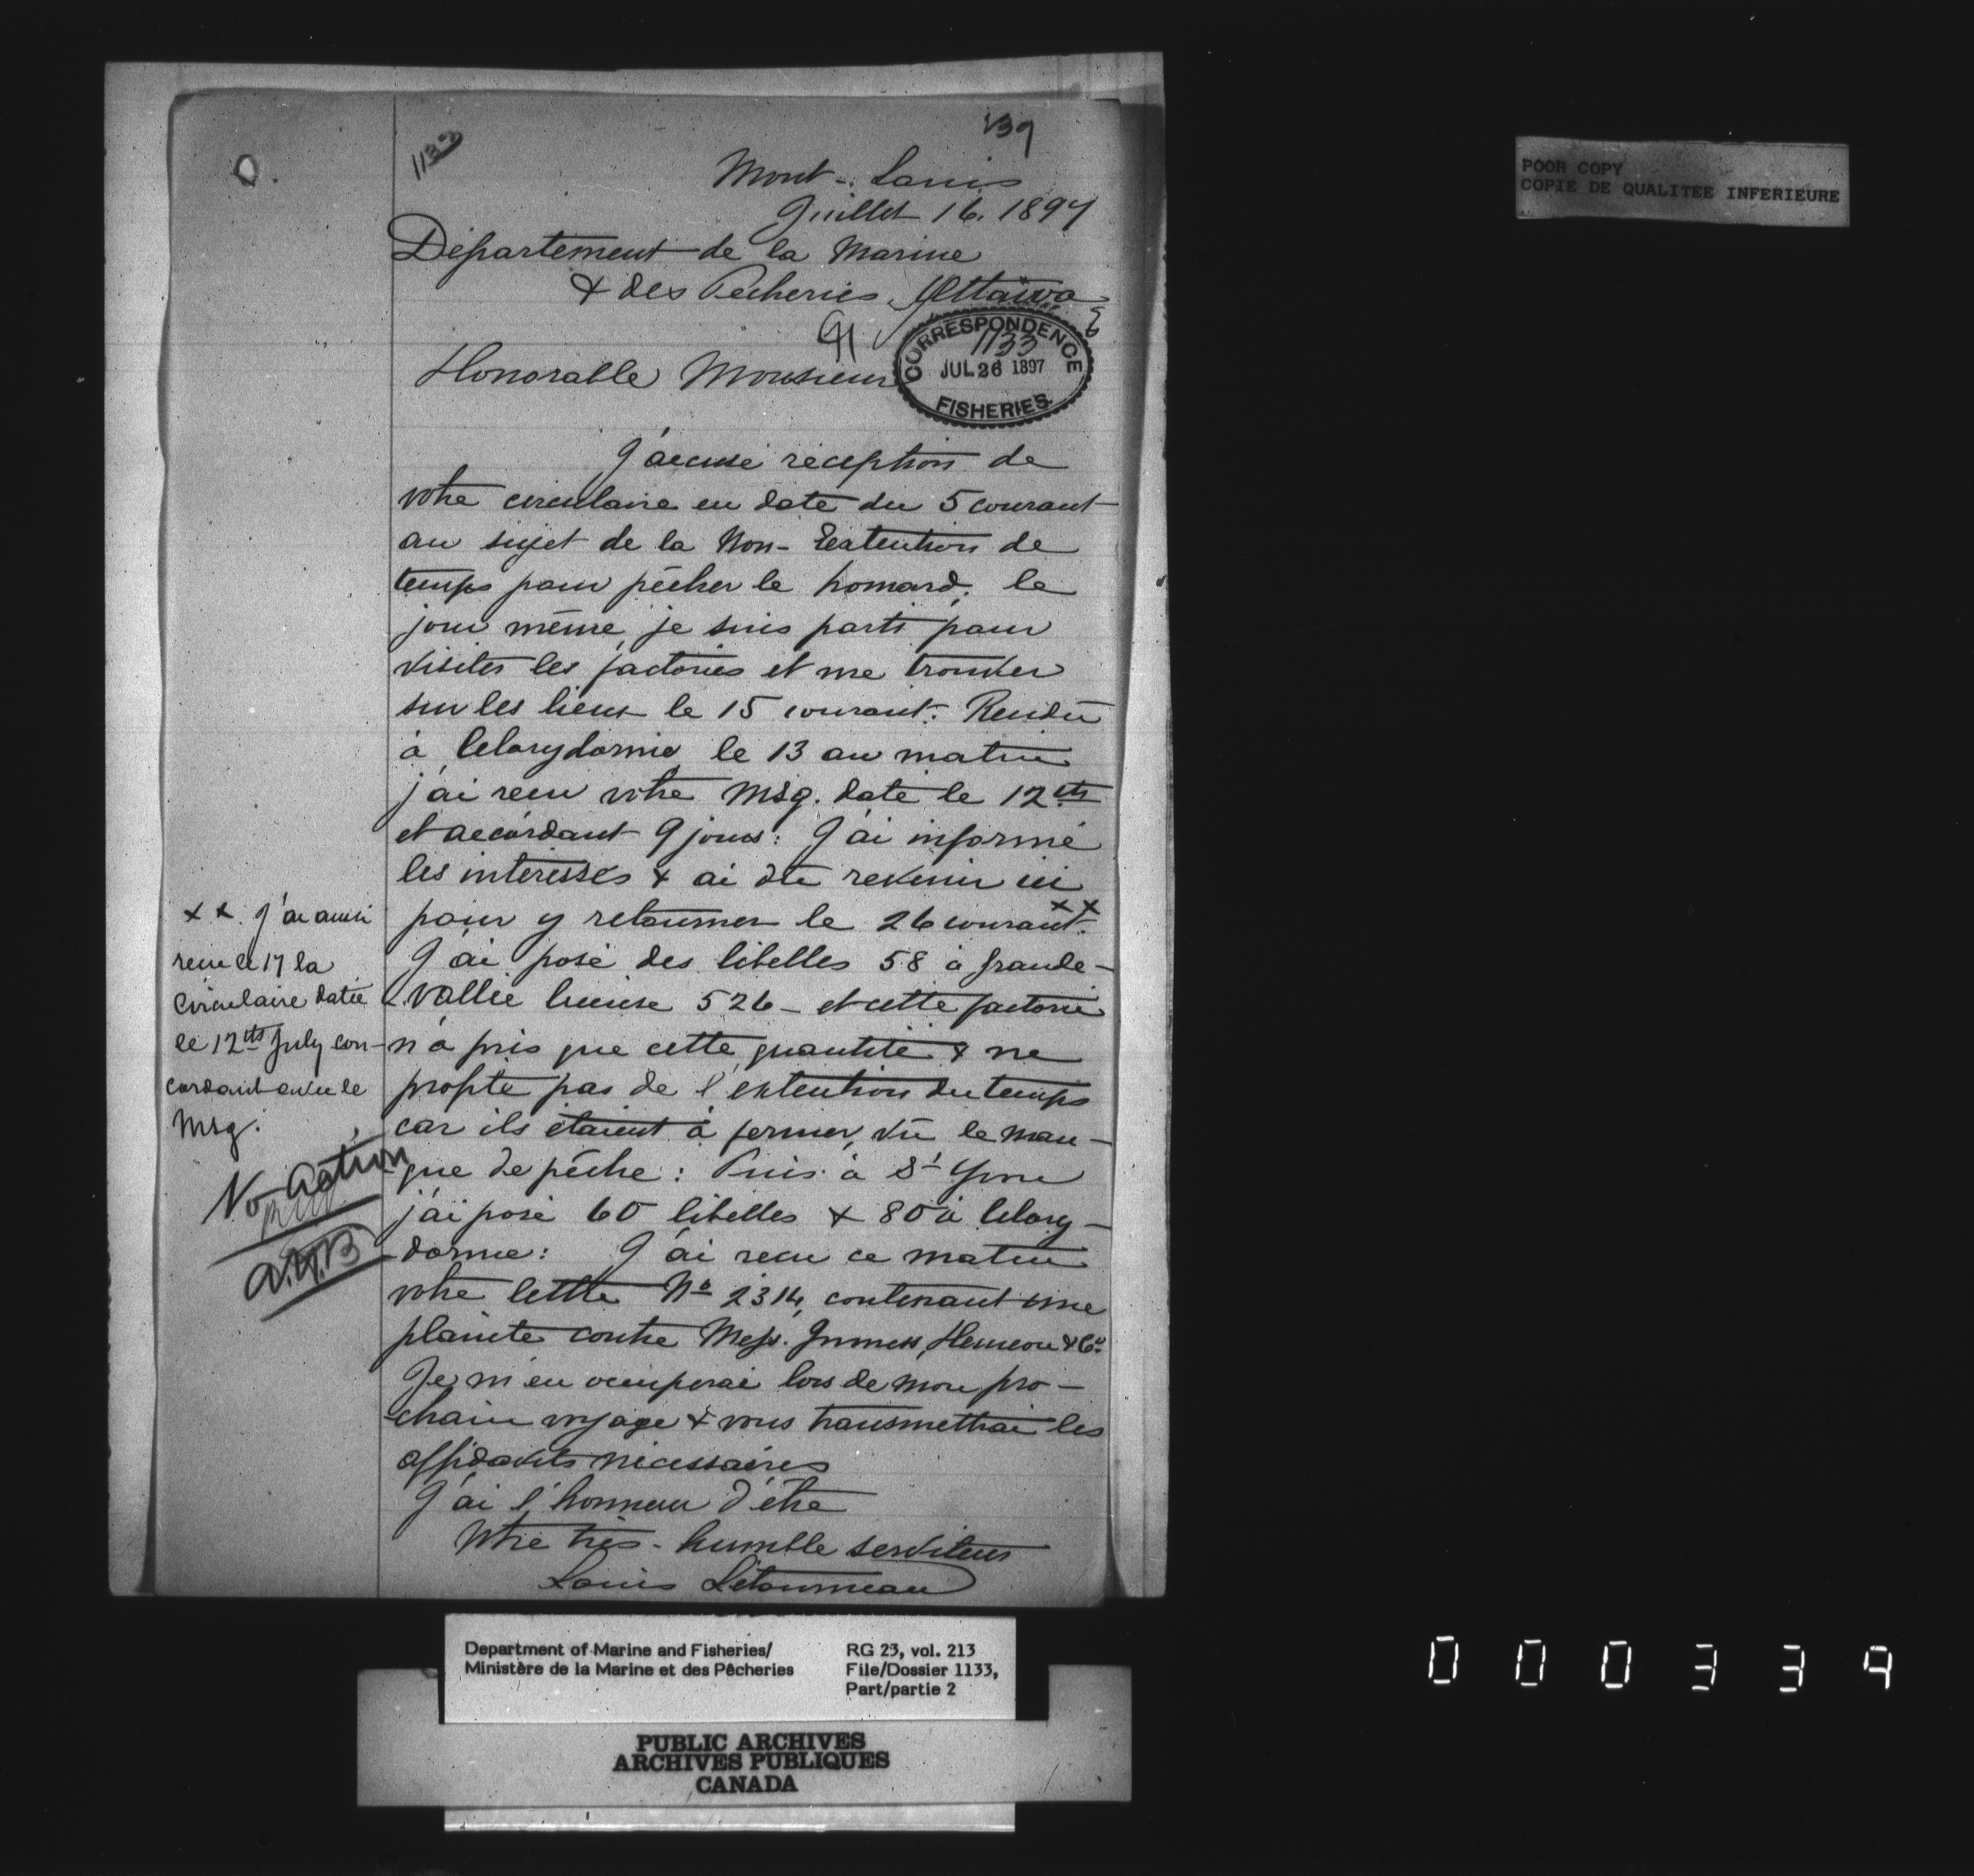 1133
139
Mont-Louis
Juillet 16. 1897
Département de la Marine
& des Pêcheries, Ottawa
CORRESPONDENCE
1133
JUL 26 1897
FISHERIES
Honorable Monsieur
J'accuse réception de
votre circulaire en date du 5 courant
au sujet de la Non-Extention de
temps pour pêcher le homard; le
jour même, je suis parti pour
visiter les factories et me trouver
sur les lieux le 15 courant: Rendu
à Clorydorme le 13 au matin
j'ai recu votre Msg. daté le 12th
et accordant 9 jours: J'ai informé
les intéressés & ai dû revenir ici
pour y retourner le 26 courant. x x
J'ai posé des libelles 58 à Grande-
Vallée licence 526 - et cette factorie
n'a pris que cette quantité & ne
profite pas de l'extention du temps
car ils étaient à fermer, vû le man-
que de pêche: Puis à St Yvon
j'ai posé 60 libelles & 80 à Clory-
dorme: J'ai recu ce matin
votre lettre No 2314, contenant une
plainte contre Mess. Hemeon & Co.
Je m'en occuperai lors de mon pro-
chain voyage & vous transmettrai les
affidavits nécessaires
J'ai l'honneur d'être
Votre très-humble serviteur
Louis Létourneau
x x. J'ai aussi
recu le 17 la
circulaire datée
le 12th July con-
cordant avec le
Msg.
No action
POOR COPY
COPIE DE QUALITEE INFERIEURE
Department of Marine and Fisheries/
Ministère de la Marine et des Pêcheries
RG 23, vol. 213
File/Dossier 1133,
Part/partie 2
PUBLIC ARCHIVES
ARCHIVES PUBLIQUES
CANADA
000339